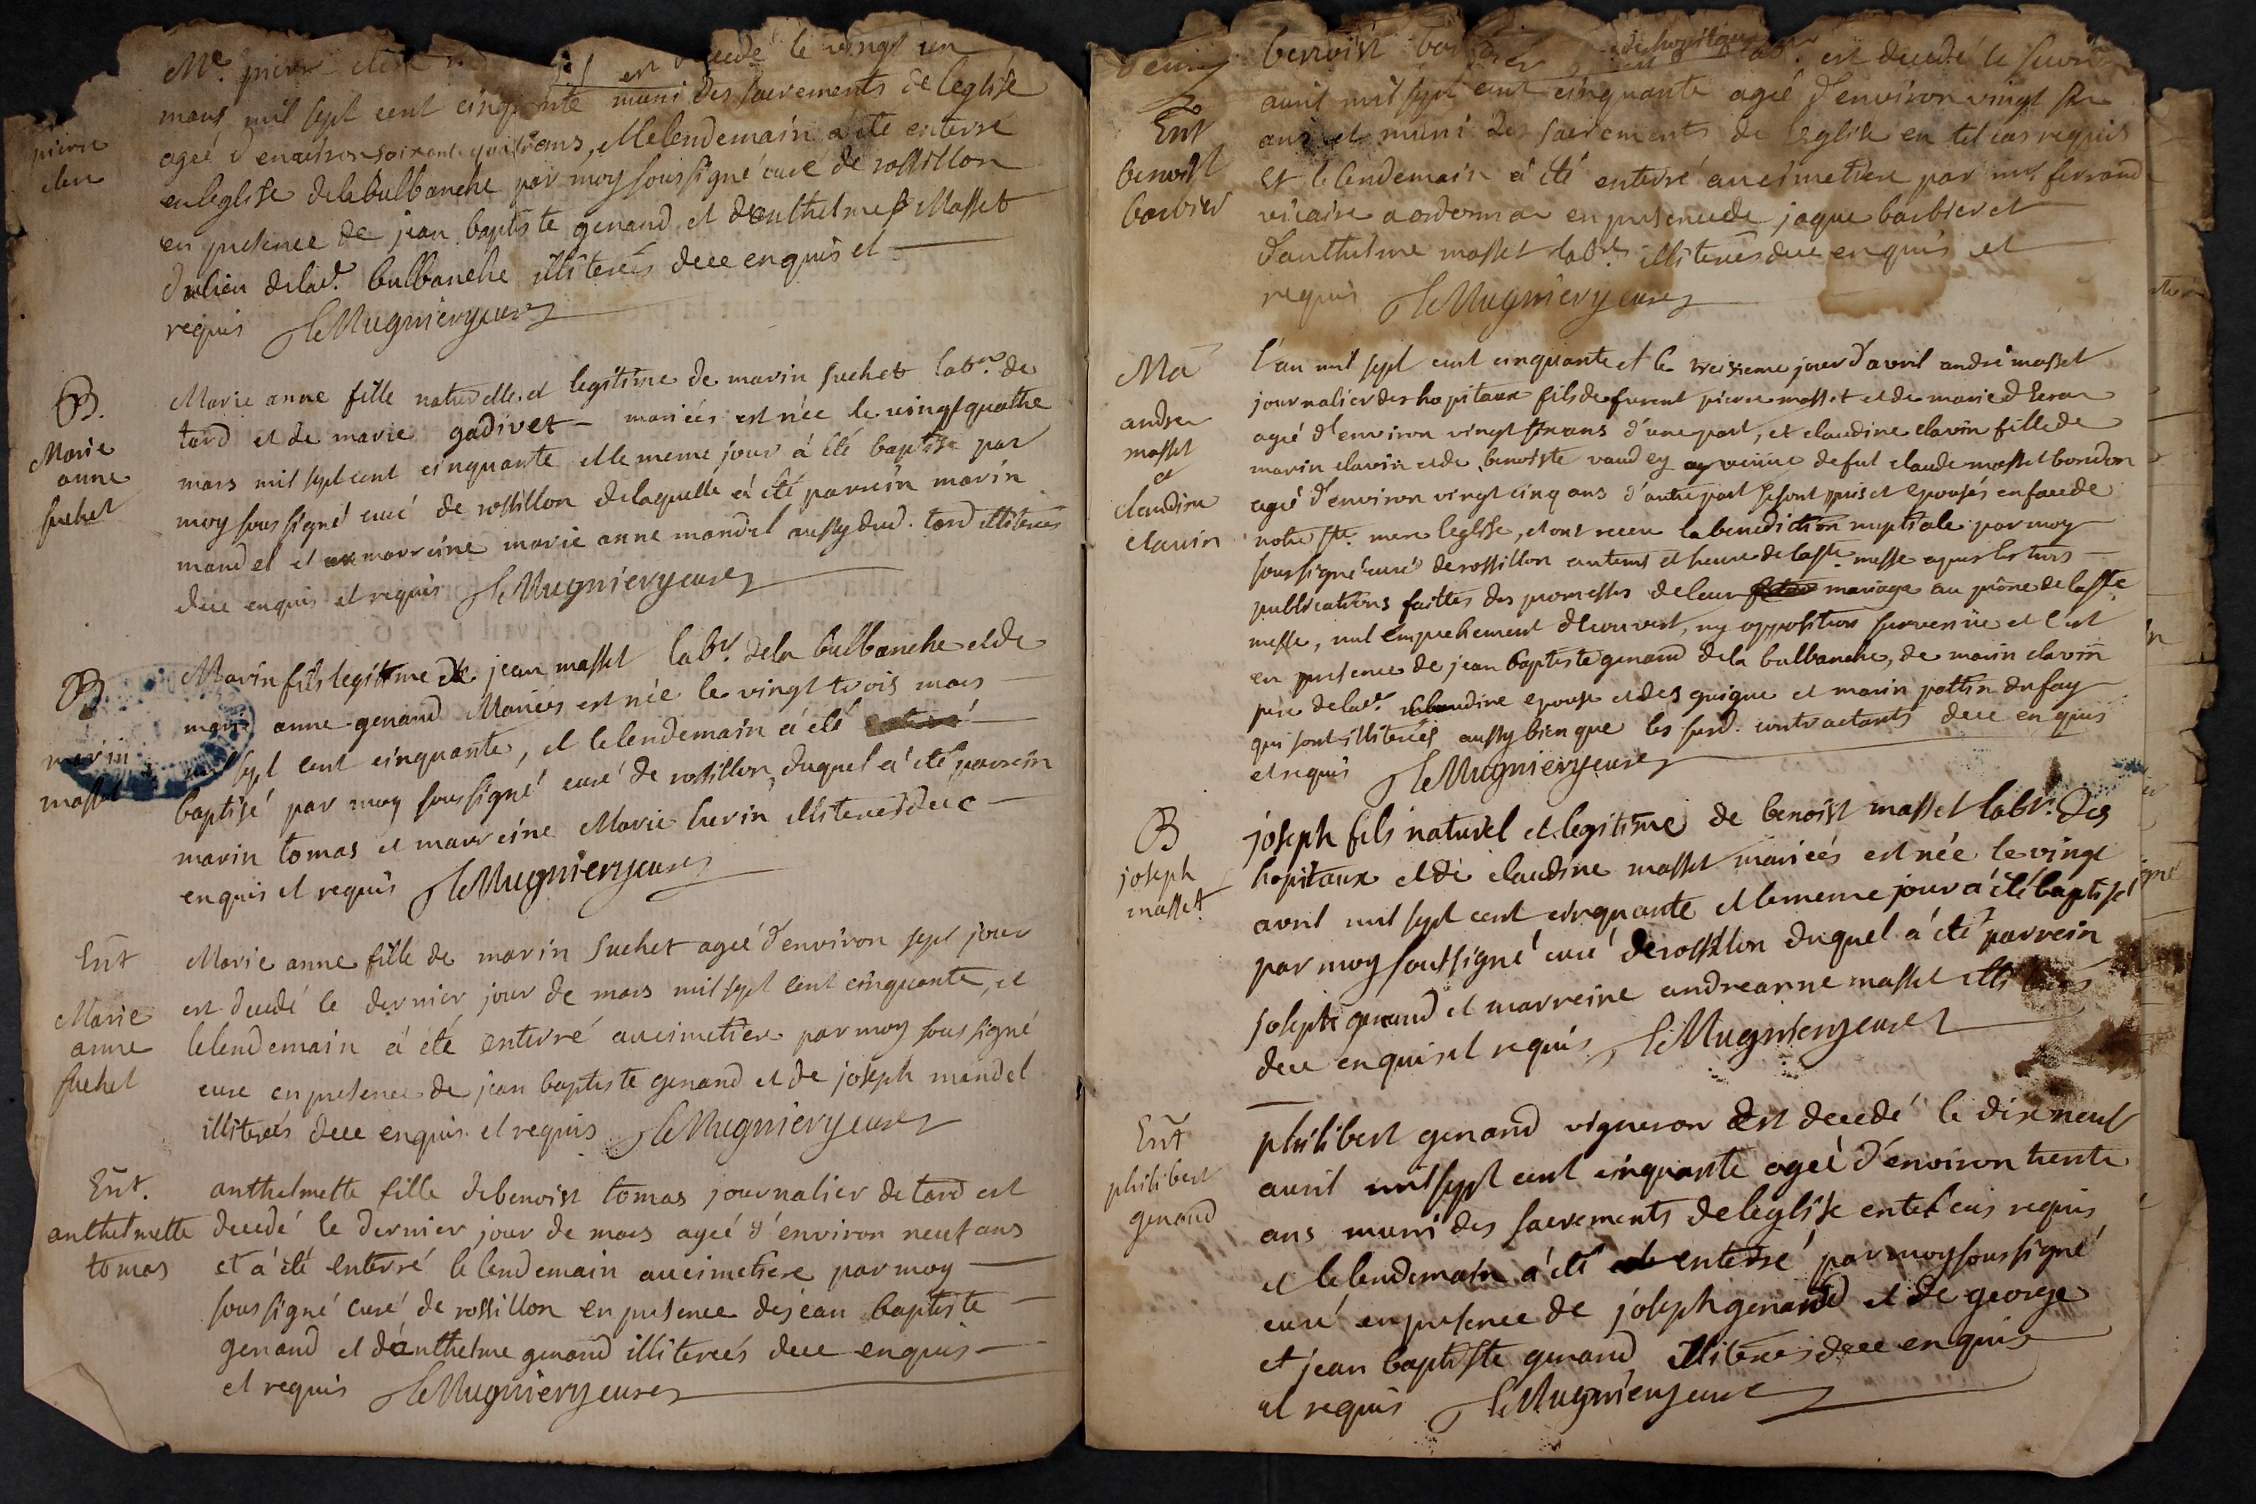 Me. pierre est decedé le vingt un
mars mil sept cent cinquante muni des sacrements de leglise
pierre
ageé d'environ soixante quatre ans, et lelendemain a été enterré
en leglise delabulbanche par moy soussigné curé de rossillon
en presence de jean baptiste genand et d'anthelme Masset
dulieu delad. bulbanche illiterés dece enquis et
requis J Le Mugnierycuré
B.
Marie
anne
suchet
Marie anne fille naturelle et legitime de marin suchet labr. de
tard et de marie gadivet mariées est née le vingt quattre
mars mil sept cent cinquante et le meme jour à été baptisé par
moy soussigné curé de rossillon delaquelle à été parrein marin
mandel et marreine marie anne mandel aussy dud. tard illiterés
dece enquis et requis J Le Mugnierycuré
B
marin
masset
Marin fils legitime de jean masset labr. dela bulbanche et de
marie anne genand Mariées est née le vingt trois mars
mil sept cent cinquante, et lelendemain à été
baptisé par moy soussigné curé de rossillon duquel à été parrein
marin tomas et marreine Marie herin illiterés dece
enquis et requis J Le Mugnierycuré
Ent
Marie
anne
suchet
Marie anne fille de marin suchet ageé d'environ sept jour
est decedé le dernier jour de mars mil sept cent cinquante, et
lelendemain à été enterré aucimetiere par moy soussigné
curé en presence de jean baptiste genand et de joseph mandel
illiterés dece enquis et requis J Le Mugnierycuré
Ent.
anthelmette
tomas
anthelmette fille debenoist tomas journalier de tard est
decedé le dernier jour de mars ageé d'environ neuf ans
et à été enterré lelendemain aucimetiere par moy
soussigné curé de rossillon en presence dejean baptiste
genand et d'anthelme genand illiterés dece enquis
et requis J Le Mugnierycuré
Ent
benoist
barbier
benoist barbier des hopitaux labr. est decedé le
avril mil sept cent cinquante ageé d'environ vingt
ans et muni des sacrements de leglise en tel cas requis
et le lendemain à été enterré aucimetiere par mre ferrand
vicaire a ordonnaz en presence de jaque barbier et
d'anthelme masset labrs illiterés dece enquis et
requis J Le Mugnierycuré
Ma
andre
masset
et
claudine
clavin
l'an mil sept cent cinquante et le treisieme jour d'avril andré masset
journalier des hopitaux fils de furent pierre masset et de marie
ageé d'environ vingt ans d'une part, et claudine clavin fille de
marin clavin et de benoiste vaudey veuve de fut claude masset bondon
ageé d'environ vingt cinq ans d'autre part se sont pris et epousés en face de
notre ste. mere leglise, et ont receu labenediction nuptiale par moy
soussigné curé de rossillon autems et heure de laste messe apres les trois
publications faittes des promesses de leur mariage au prône de laste
messe, nul empechement decouvert, ny opposition survenue et c'est
en presence de jean baptiste genand dela bulbanche, de marin clavin
pere delad. claudine epouse et des guigue et marin pottin dufay
qui sont illiterés aussy bien que les susd. contractants dece enquis
et requis J Le Mugnierycuré
B
joseph
masset
joseph fils naturel et legitime de benoist masset labr. des
hopitaux et de claudine masset mariées est née le vingt
avril mil sept cent cinquante et lememe jour à été baptisé
par moy soussigné curé de rossillon duquel à été parrein
joseph genand et marreine andreanne masset illiterés
dece enquis et requis J Le Mugnierycuré
Ent
philibert
genand
philibert genand vigneron est decedé le dix neuf
avril mil sept cent cinquante ageé d'environ trente
ans muni des sacrements de leglise entel cas requis
et lelendemain à été enterré par moy soussigné
curé en presence de joseph genand et de george
et jean baptiste genand illiterés dece enquis
et requis J Le Mugnierycuré